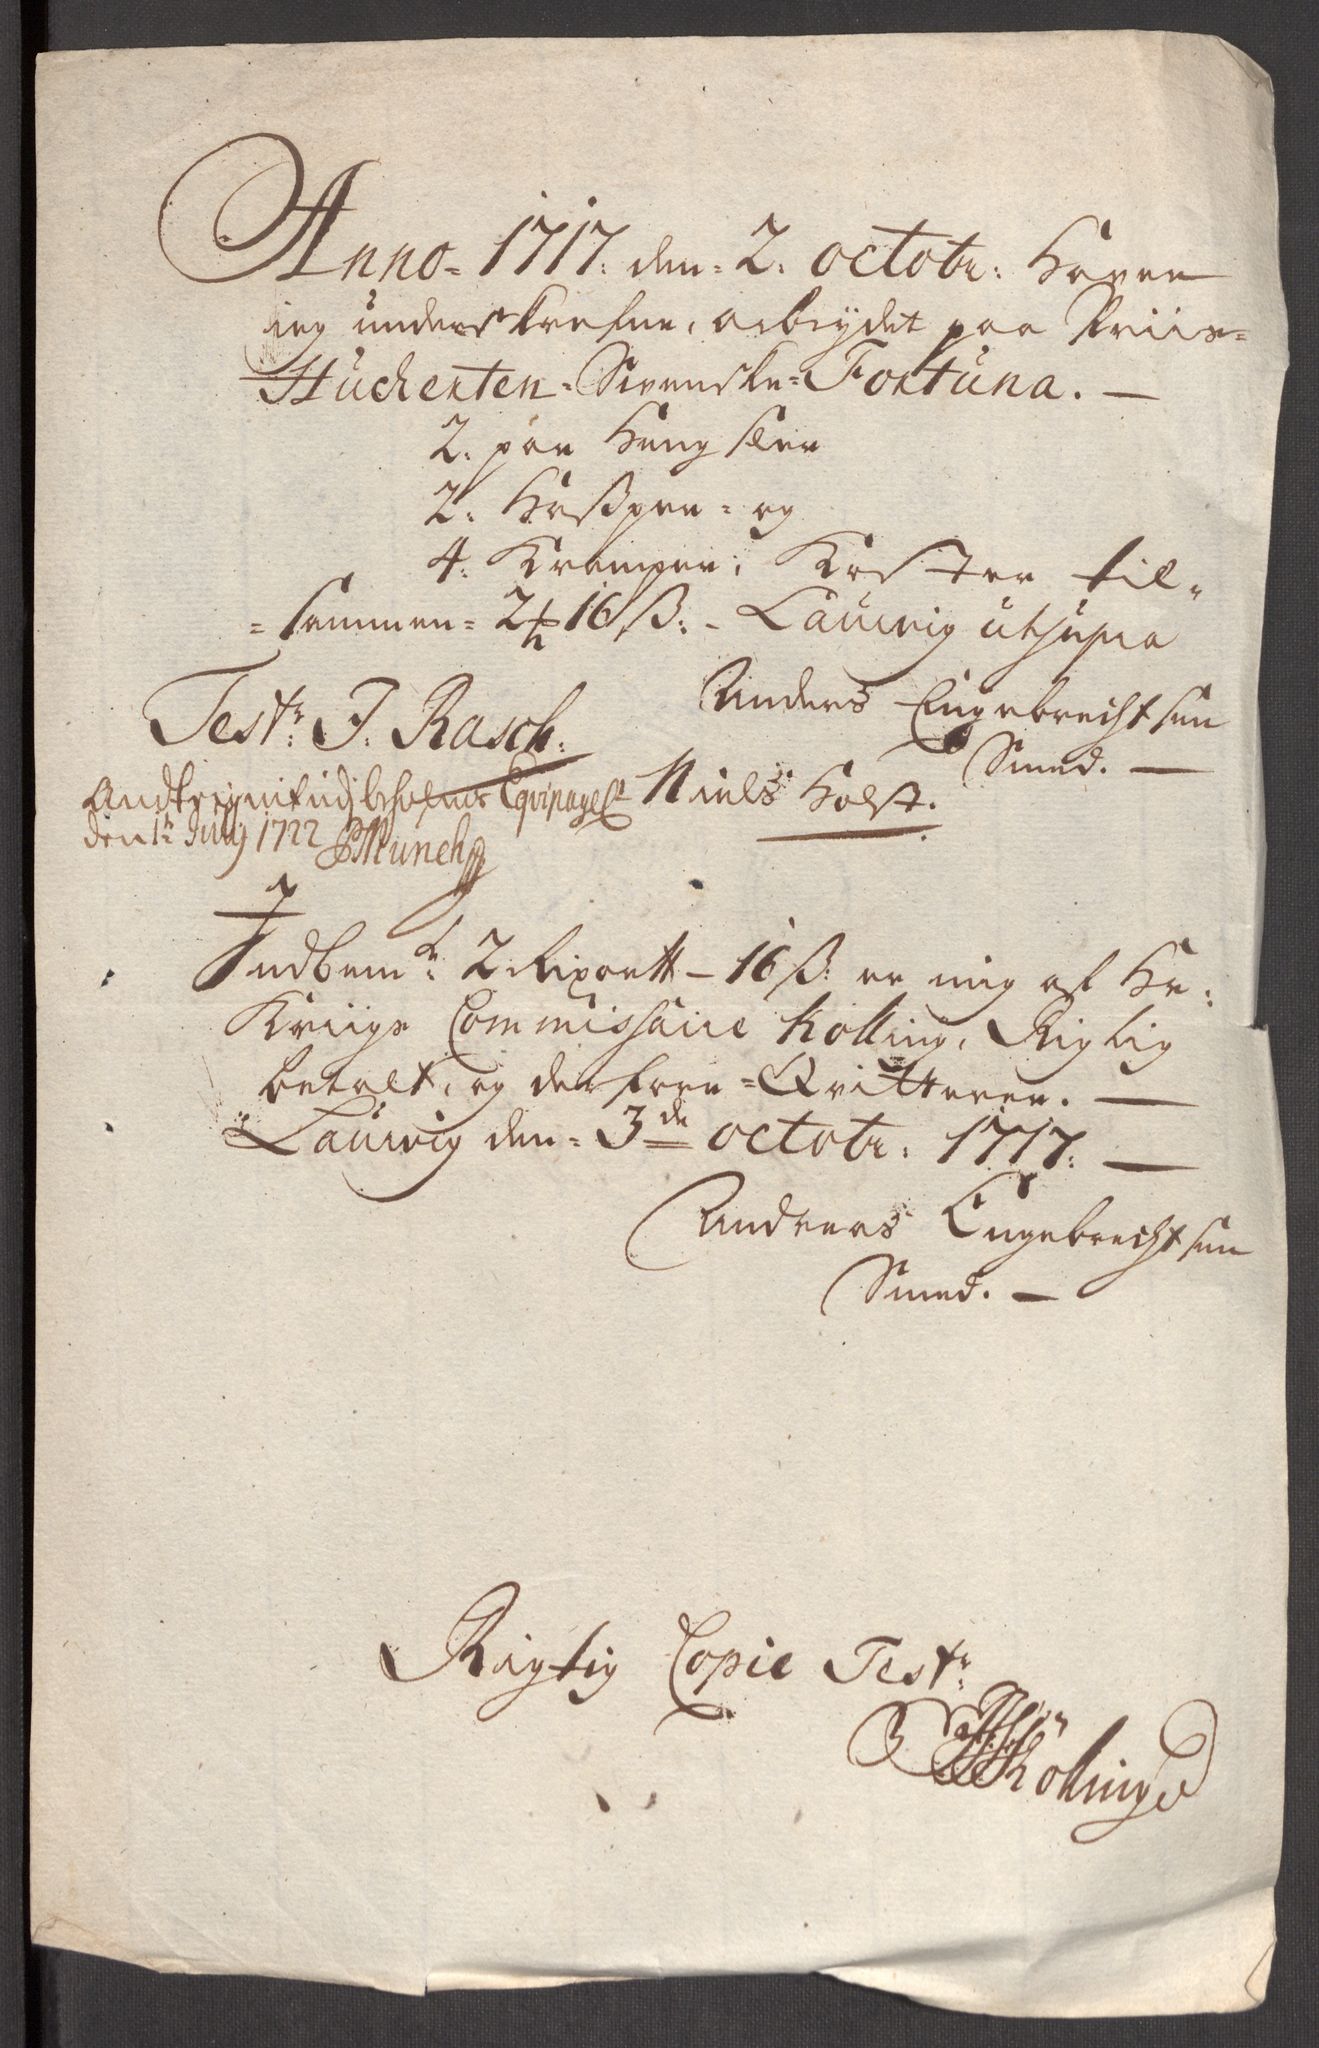 Anno 1717. den 2. octobr: Hafver
ieg underskrefne, arbeydet paa Priis-
Huckerten Svenske Fortuna. —
2. par Hengsler
2. Haßper og
4. Kramper, Koster til-
sammen 2 16 ß: Laurvig ut supra
Anders Engebrechtsen
Smed. —
Test: J. Rasch.
Niels Holst.
Equipage
den 1 July 1722 Munch
Indbem.te 2 Rixortt 16 ß: er mig af Hr:
Kriigs Commissaire Kolling, Rigtig
betalt, og derfore Qvitterer. —
Laurvig den 3de octobr. 1717. —
Anders Engebrechtsen
Smed. —
Rigtig Copie Test:
Kolling